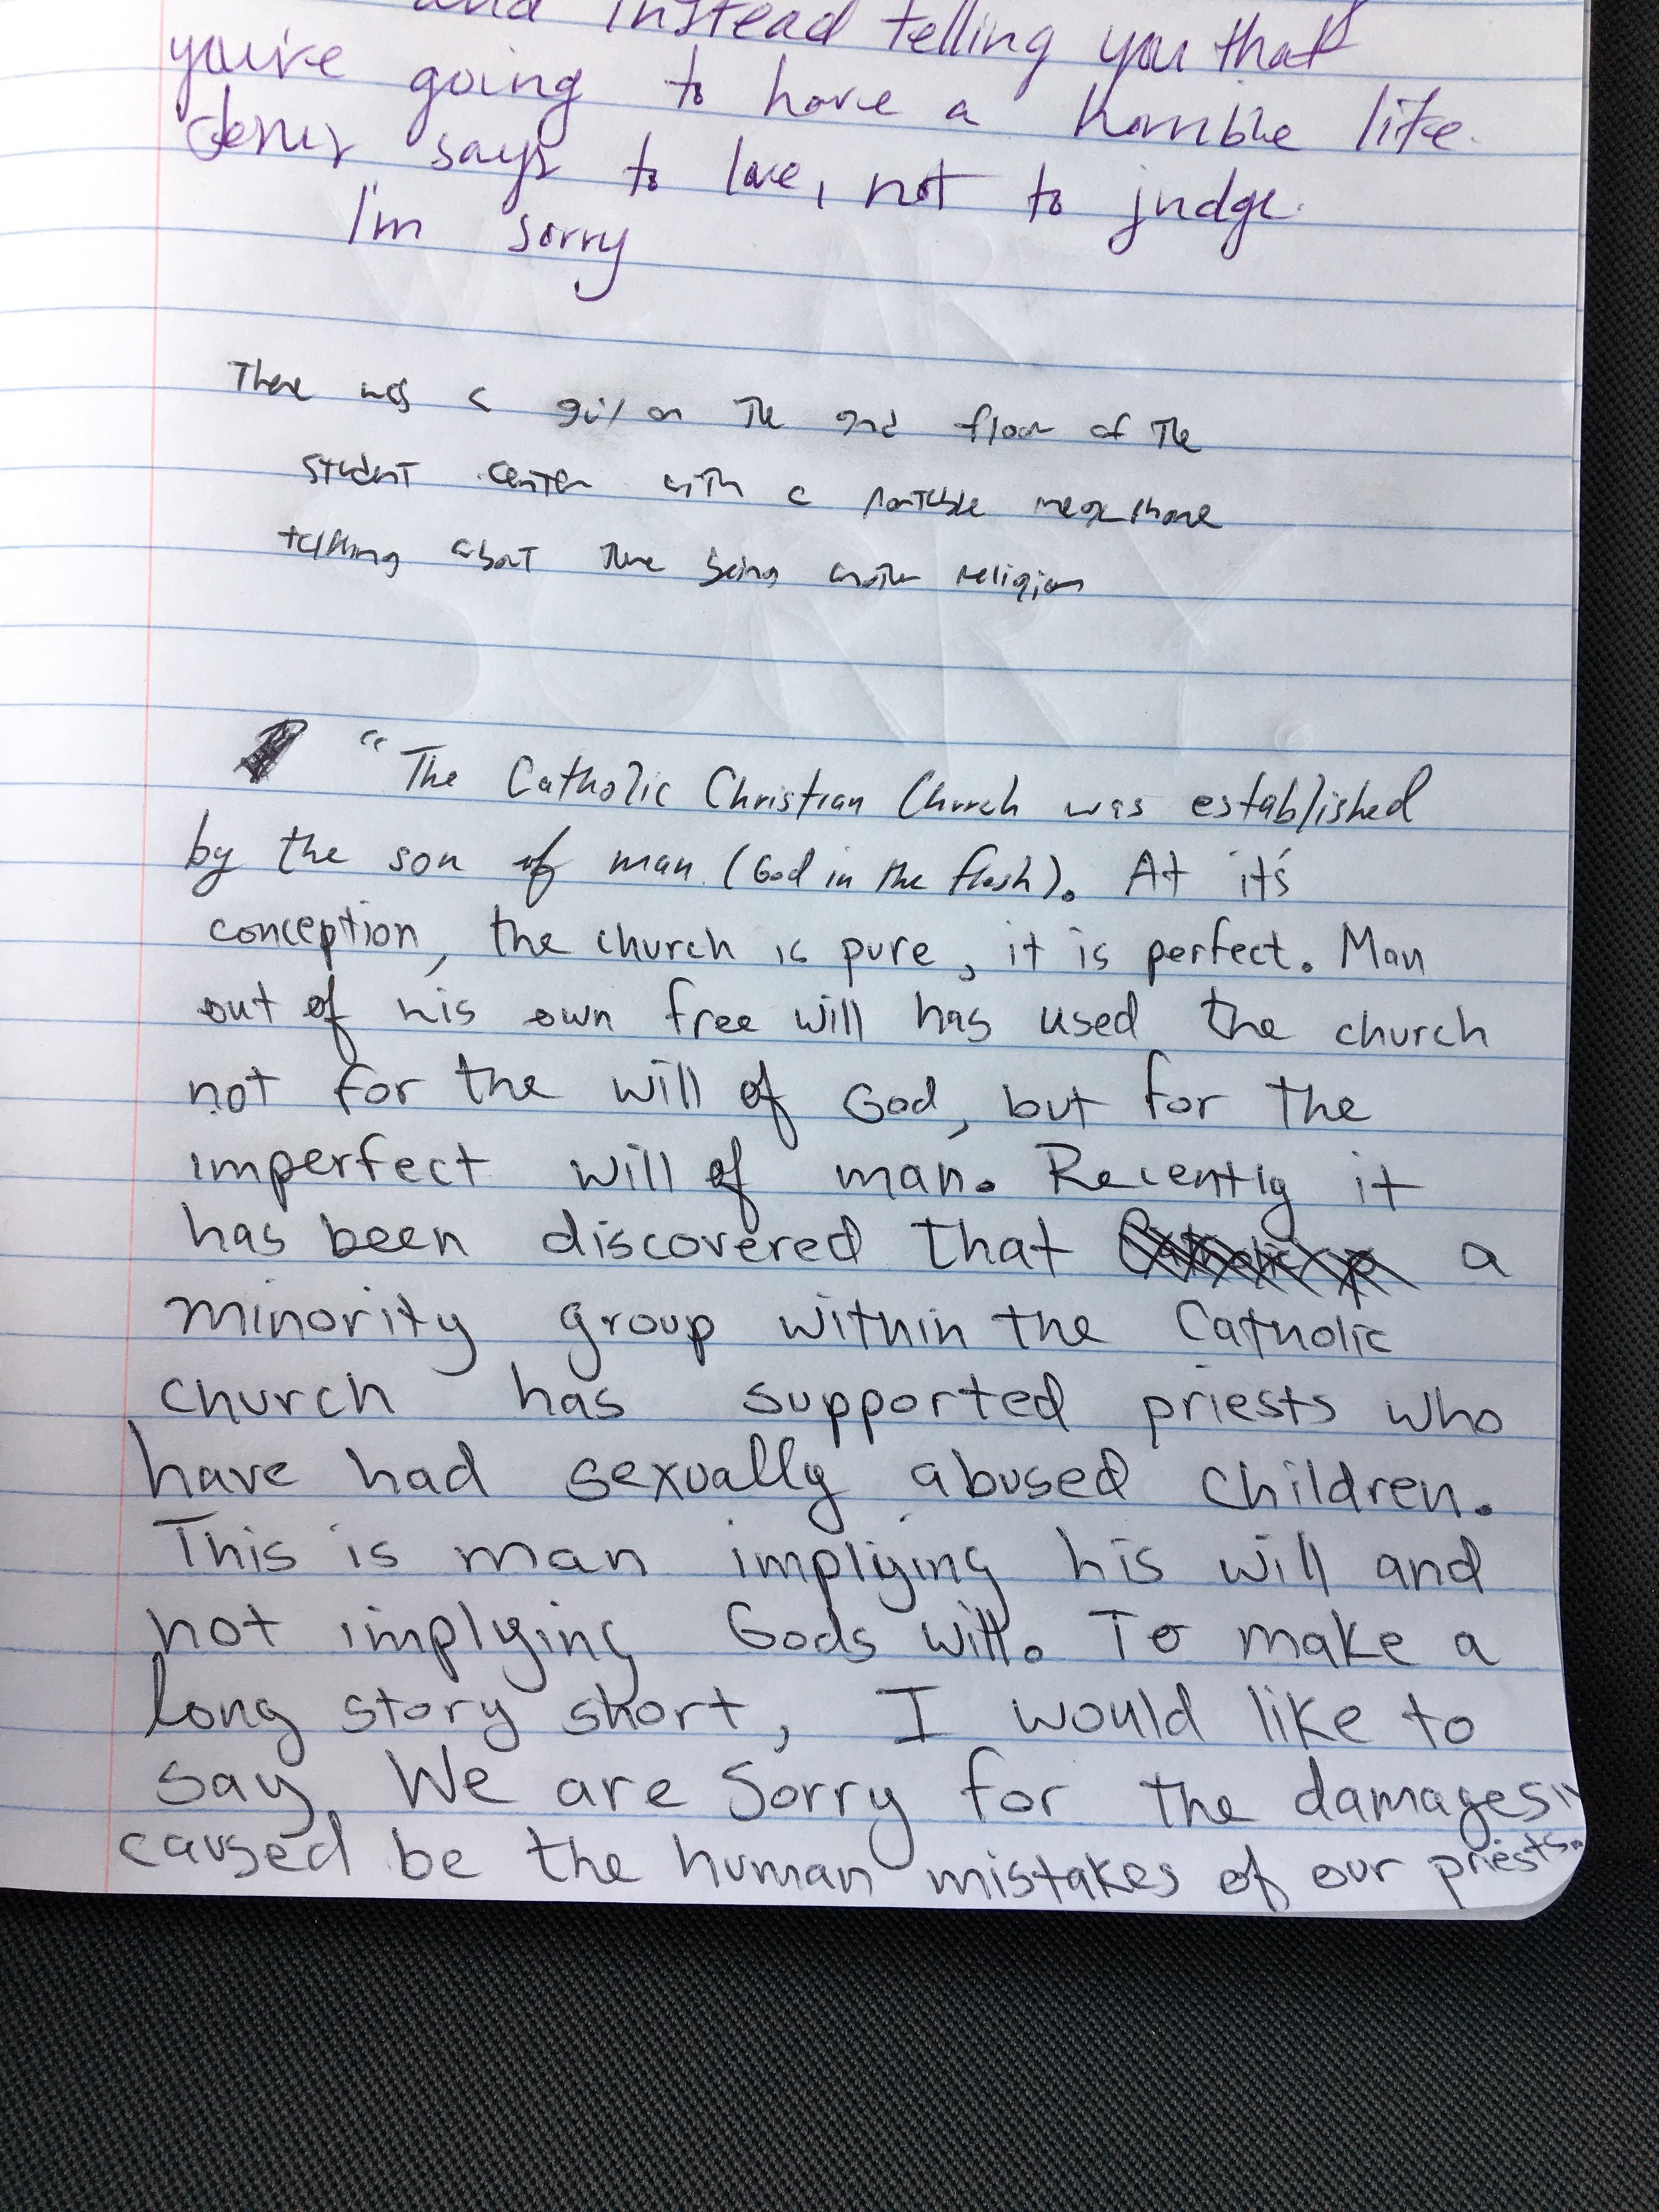 and instead telling you that
you're going to have a horrible life.
Jesus says to love, not to judge.
I'm sorry
There was a girl on the 2nd floor of the
student center with a portable megaphone
talking about there being another religion
"The Catholic Christian Church was established
by the son of man (God in the flesh). At it's
conception, the church is pure, it is perfect. Man
out of his own free will has used the church
not for the will of God, but for the
imperfect will of man. Recently it
has been discovered that a
minority group within the Catholic
church has supported priests who
have had sexually abused children.
This is man implying his will and
not implying Gods will. To make a
long story short, I would like to
say, We are Sorry for the damages
caused be the human mistakes of our priests.
WE ARE
SORRY.